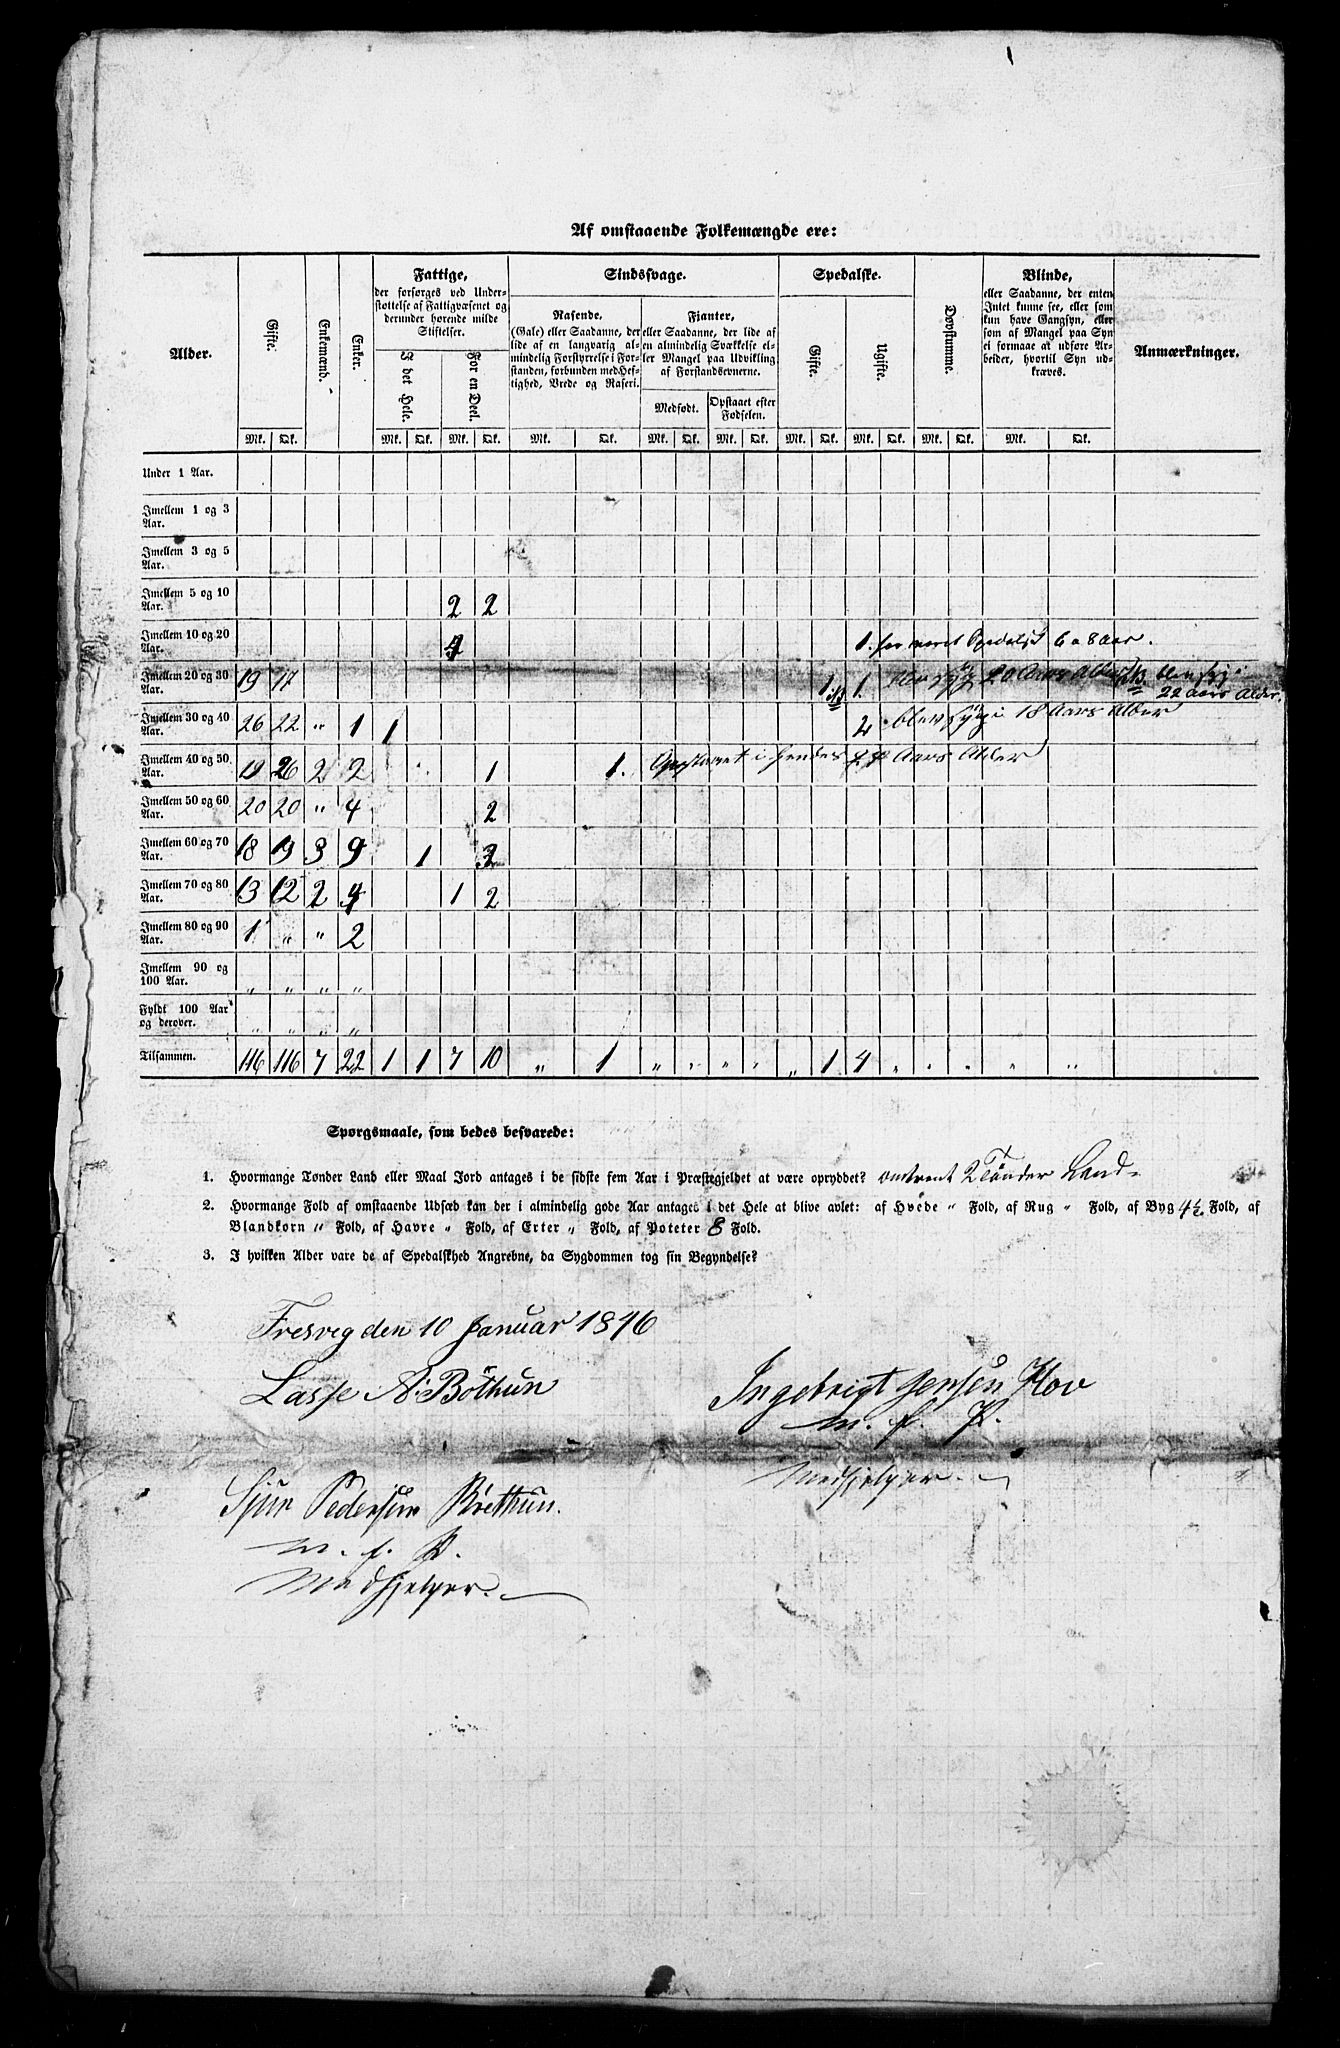 Af omstaaende Folkemængde ere:
Alder.
Gifte.
Enkemænd.
Enker.
Fattige,
der forsørges ved Under-
støttelse af Fattigvæsenet og
derunder hørende milde
Stiftelser.
I det Hele.
For en Deel.
Sindssvage.
Rasende.
(Gale) eller Saadanne, der
lide af en langvarig al-
mindelig Forstyrrelse i For-
standen, forbunden med Hef-
tighed, Vrede og Raseri.
Fjanter,
eller Saadanne, der lide af
en almindelig Svækkelse el-
ler Mangel paa Udvikling
af Forstandsevnerne.
Medfødt.
Opstaaet efter
Fødselen.
Spedalske.
Gifte.
Ugifte.
Døvstumme.
Blinde,
eller Saadanne, der enten
Intet kunne see, eller som
kun have Gangsyn, eller
som af Mangel paa Syn
ei formaae at udføre Ar-
beider, hvortil Syn ud-
kræves.
Anmærkninger.
Mk. Qk. Mk. Qk. Mk. Qk. Mk. Qk. Mk. Qk. Mk. Qk. Mk. Qk. Mk. Qk. Mk. Qk. Mk. Qk.
Under 1 Aar.
Imellem 1 og 3
Aar.
Imellem 3 og 5
Aar.
Imellem 5 og 10
Aar. 2 2
Imellem 10 og 20
Aar. 4 1. har været Spedalsk 6 a 8 Aar.
Imellem 20 og 30
Aar. 19 17 1 NB 1. blev syg i 20 Aars Alder NB. blev syg i
22 Aars Alder.
Imellem 30 og 40
Aar. 26 22 " 1 1 2 blev syg i 18 Aars Alder
Imellem 40 og 50
Aar. 19 26 2 2 1 1. Opstaaet i hendes Aars Alder
Imellem 50 og 60
Aar. 20 20 " 4 2
Imellem 60 og 70
Aar. 18 19 3 9 1 3
Imellem 70 og 80
Aar. 13 12 2 4 1 2
Imellem 80 og 90
Aar. 1 " " 2
Imellem 90 og
100 Aar. " " " "
Fyldt 100 Aar
og derover. " " " "
Tilsammen. 116 116 7 22 1 1 7 10 " 1 " " " " " 1 4 " " " " "
Spørgsmaale, som bedes besvarede:
1. Hvormange Tønder Land eller Maal Jord antages i de sidste fem Aar i Præstegjeldet at være opryddet? omtrent 2 Tönder Land.
2. Hvormange Fold af omstaaende Udsæd kan der i almindelig gode Aar antages i det Hele at blive avlet: af Hvede " Fold, af Rug " Fold, af Byg 4½ Fold, af
Blandkorn " Fold, af Havre " Fold, af Erter " Fold, af Poteter 8 Fold.
3. I hvilken Alder vare de af Spedalskhed Angrebne, da Sygdommen tog sin Begyndelse?
Fresvig den 10 Januar 1846
Lasse A: Böthun
Ingebrigt Jensen Hov
m. f. P.
Medhjelper.
Sjur Pedersen Bøethun.
m. f. P.
Medhjelper.